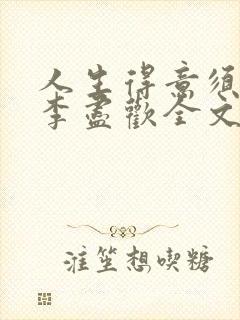 人生得意须
李尽欢全文
注笙想喫糖